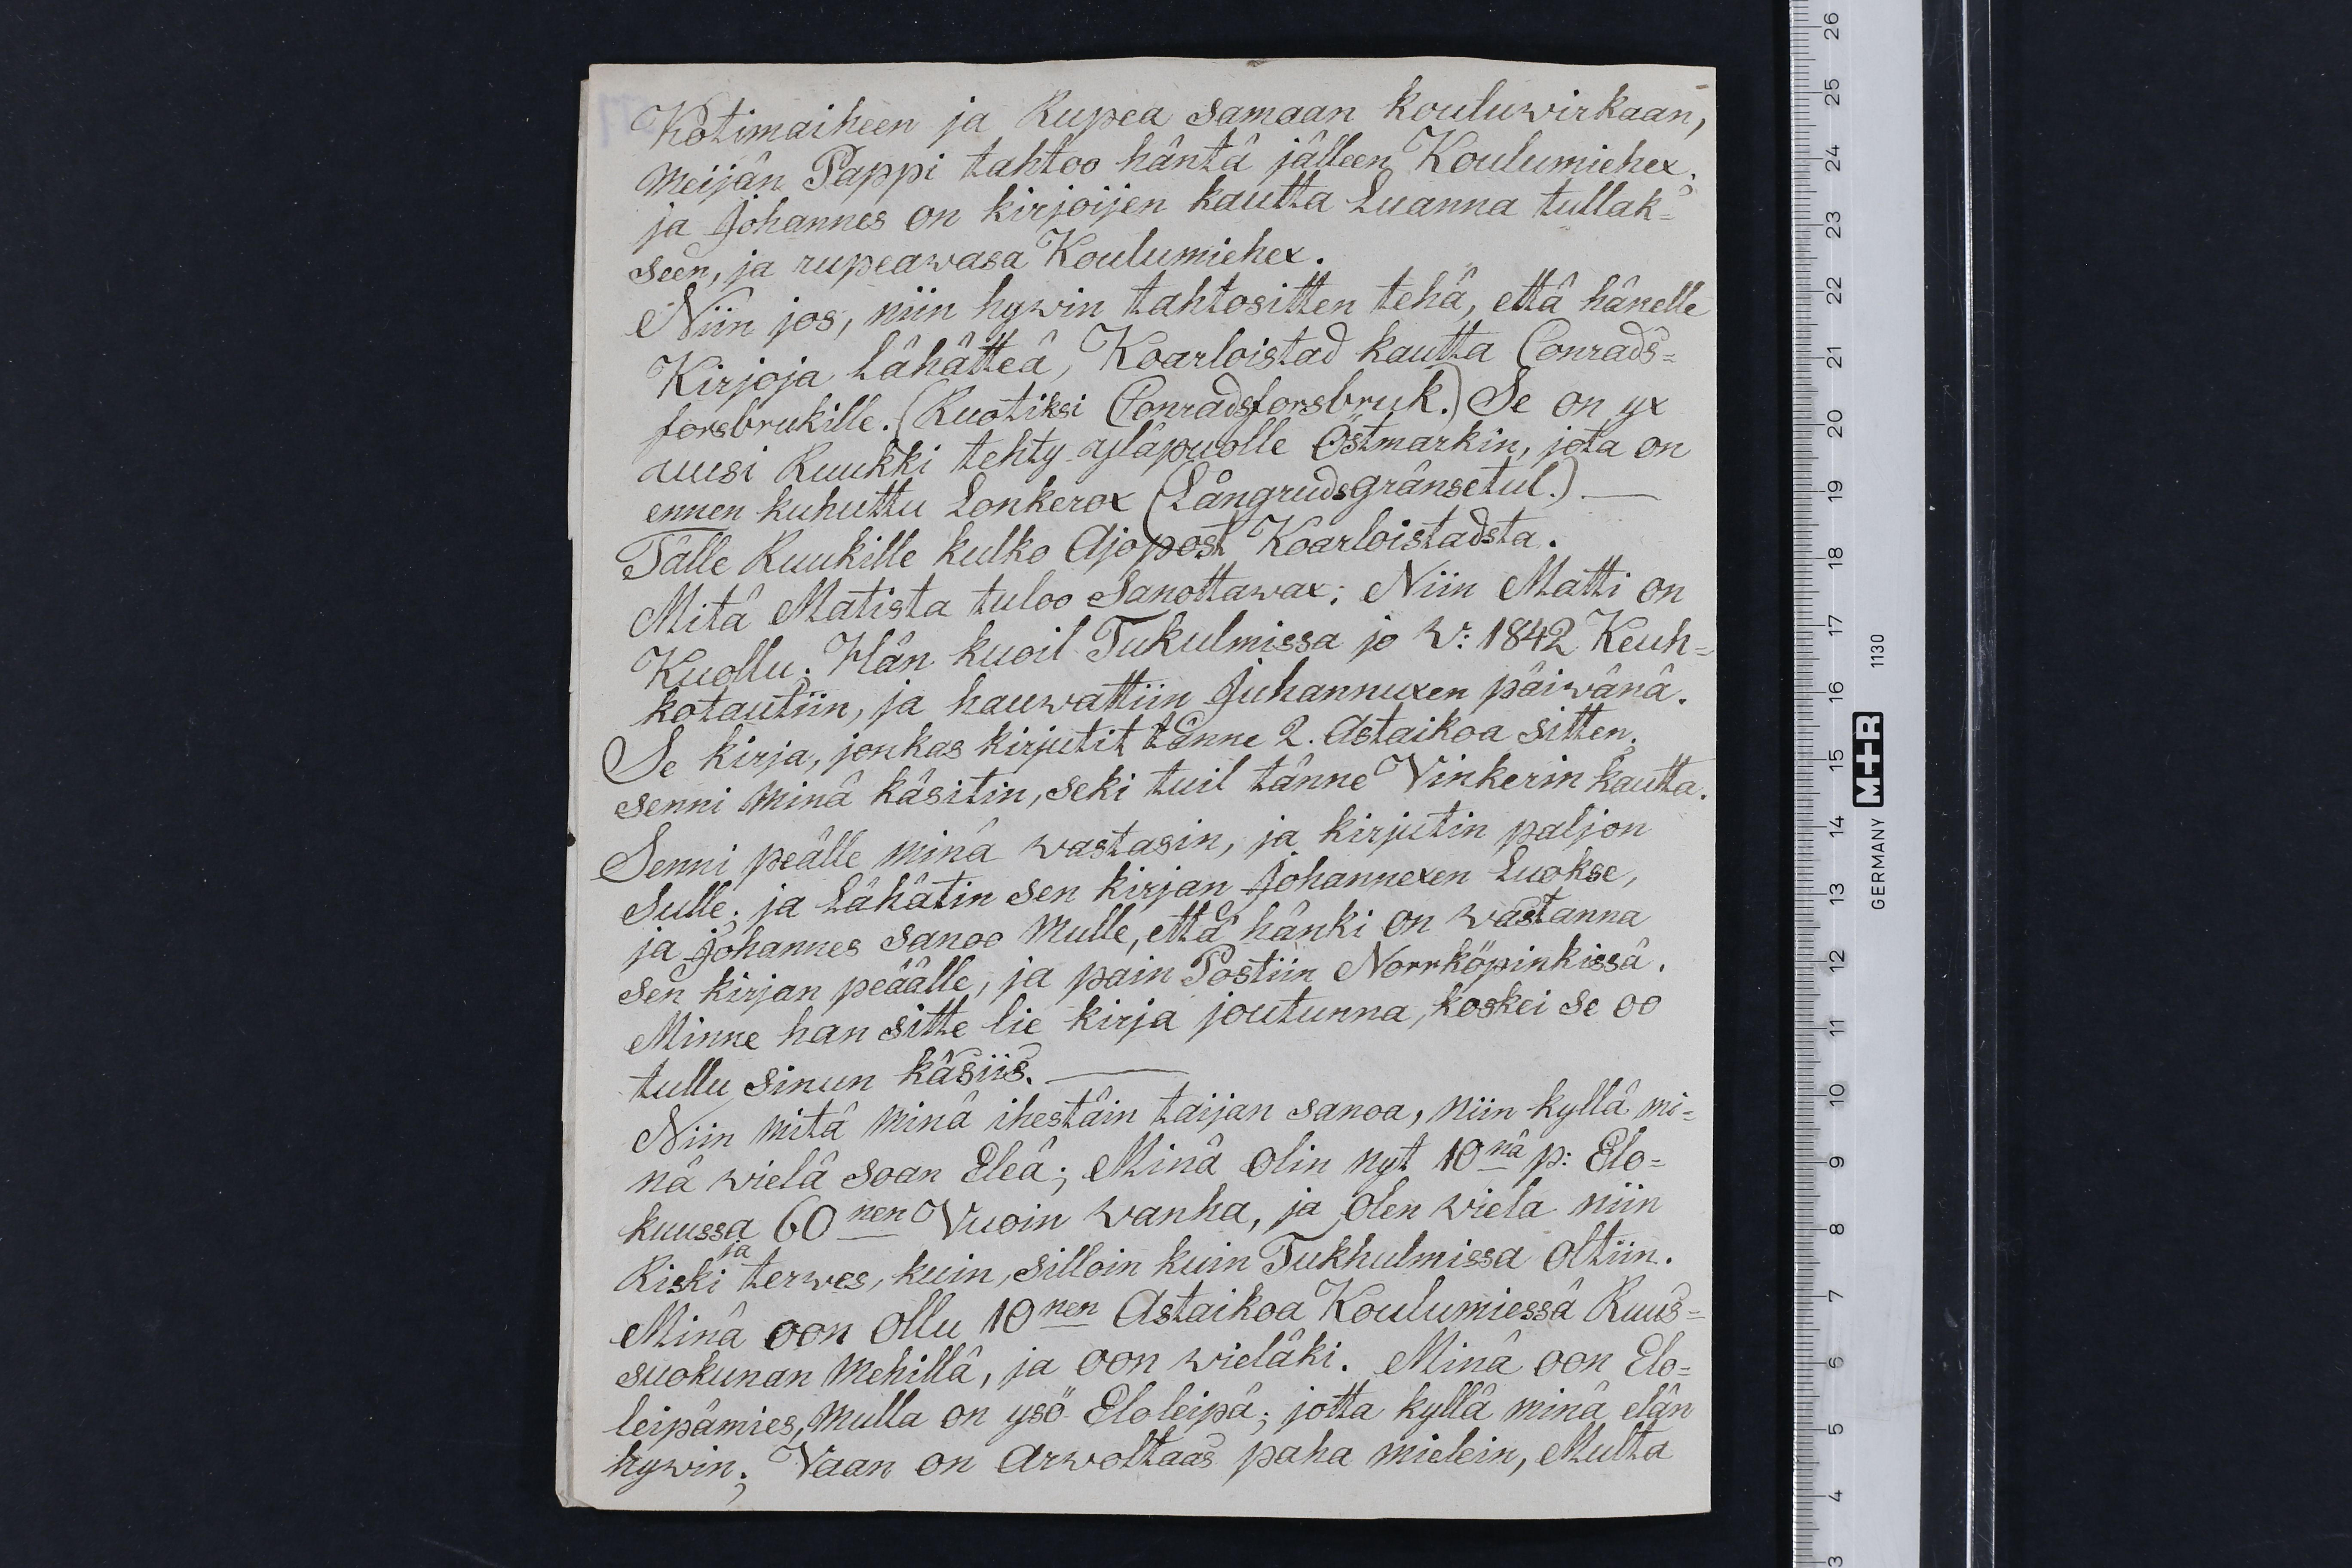 Kotimaiheen ja Rupea samaan kouluwirkaan,
meijän Pappi tahtoo häntä jälleen Koulumiehex;
ja Johannes on kirjoijen kautta Luanna tullak=
seen, ja rupeawasa Koulumiehex.
Niin jos, niin hywin tahtositten tehä, että hänelle
Kirjoja Lähätteä, Koarloistad kautta Conrads=
forsbrukille. (Ruotiksi Conradsforsbruk.) Se on yx
uusi Ruukki tehty ylâpuolle Östmarkin, jota on
ennen kuhuttu Lonkerox (Långrudsgränsetul.) —
Tälle Ruukille kulko Ajopost Koarloistadsta.
Mitä Matista tuloo Sanottawax; Niin Matti on
Kuollu; Hän kuoil Tukulmissa jo w: 1842 Keuh=
kotautiin, ja hauwattiin Juhannuxen päiwänä.
Se kirja, jonkas kirjutit tänne 2. Astaikoa Sitten;
senni minä käsitin, seki tuil tänne Vinkerin kautta.
Senni peälle minä wastasin, ja kirjutin paljon
Sulle; ja Lähätin sen kirjan Johannexen Luokse,
ja Johannes sanoo Mulle, että hänki on wastanna
sen kirjan peäälle, ja pain Postiin Norrköpinkissä.
Minne han sitte lie kirja joutunna, koskei se oo
tullu sinun käsiis. —
Niin mitä minä ihestäin taijan sanoa, niin kyllä mi=
nä wielä soan Eleä; Minä olin nyt 10nä p: Elo=
kuussa 60nen Vuoin wanha, ja olen wiela niin
Riski ja terwes, kuin, silloin kuin Tukhulmissa oltiin.
Minä oon ollu 10nen Astaikoa Koulumiessä Ruus=
suokunan Mehillä, ja oon wieläki. Minä oon Elo=
leipämies, Mulla on ysö Eloleipä; jotta kyllä minä elän
hywin; Vaan on Arwoltaas paha mielein, Mutta
26
25
24
23
22
21
20
19
18
17
16
15
14
13
12
11
10
9
8
7
6
5
4
3
GERMANY M+R 1130